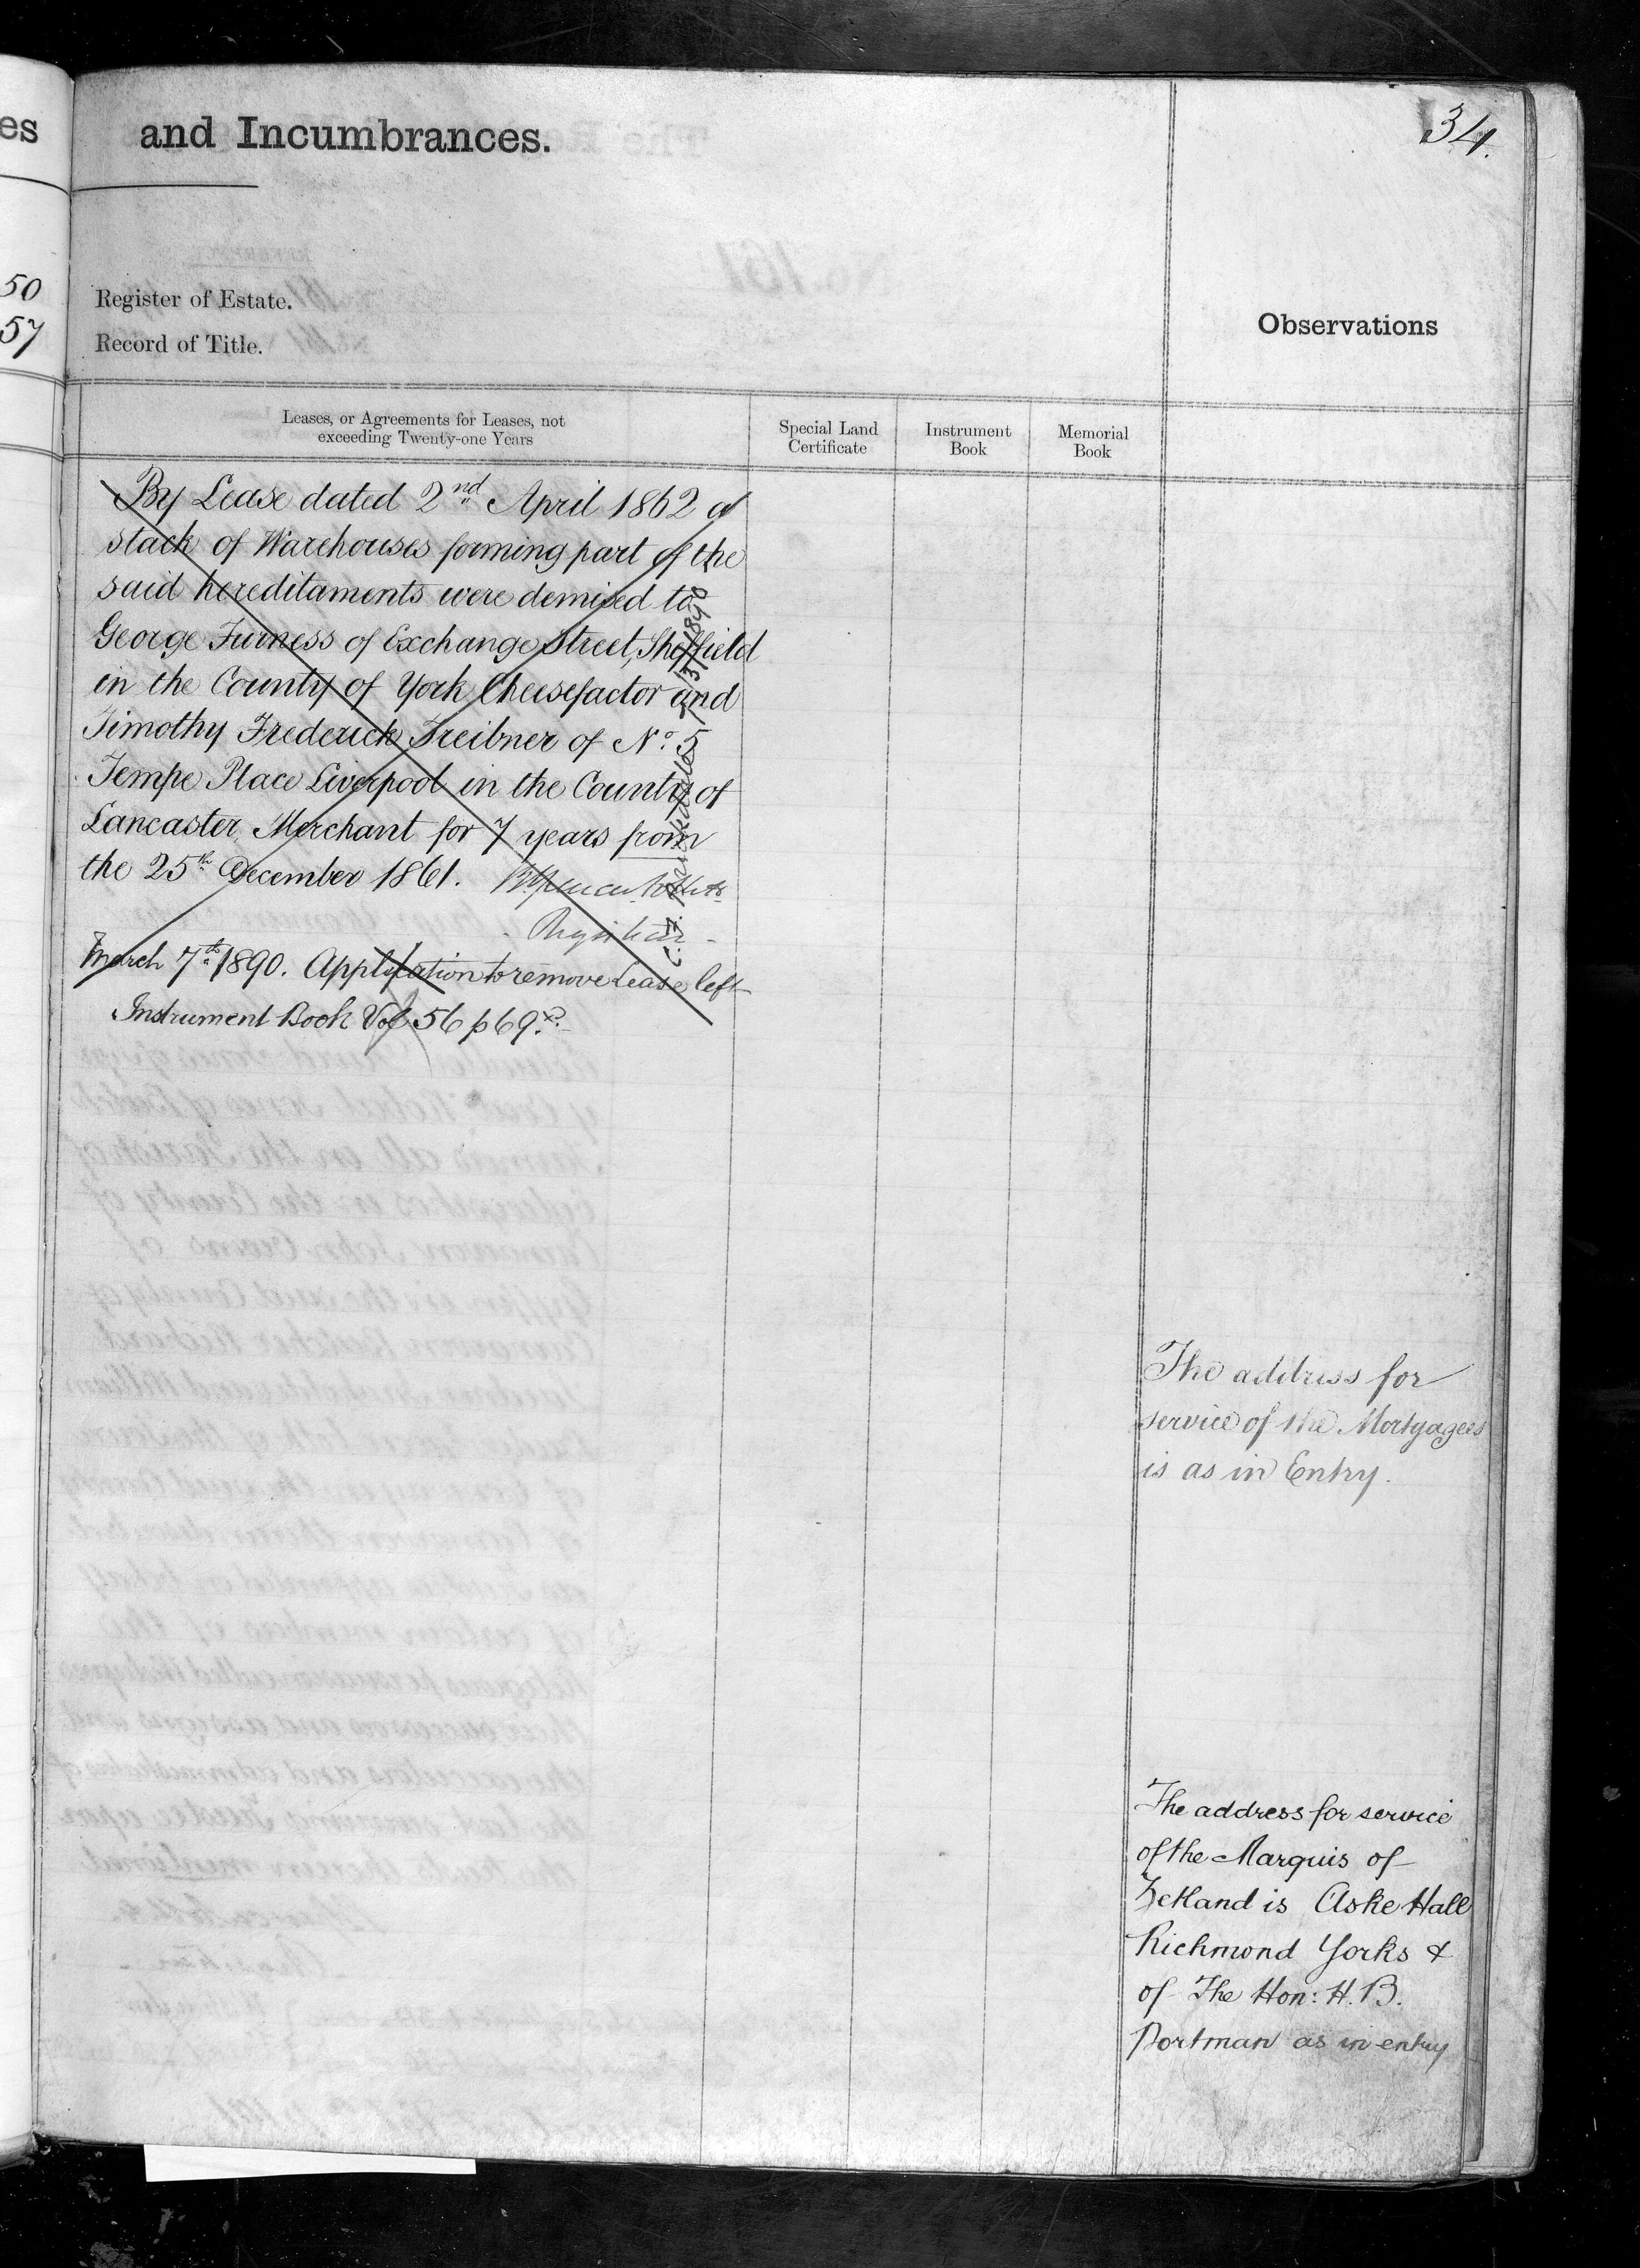 es
and Incumbrances.
34.
50
Register of Estate.
57
Record of Title.
Observations
Leases, or Agreements for Leases, not
exceeding Twenty-one Years
Special Land
Certificate
Instrument
Book
Memorial
Book
By Lease dated 2nd April 1862 a
stack of Warehouses forming part of the
said hereditaments were demised to
George Furness of Exchange Street, Sheffield
in the County of York Cheesefactor and
Timothy Frederick Treibner of No. 5
Tempe Place Liverpool in the County of
Lancaster Merchant for 7 years from
the 25th December 1861.
Registrar
March 7th 1890. Application to remove Lease left
Instrument Book Vol 56 p 69.
The address for
service of the Mortgagees
is as in Entry.
The address for service
of the Marquis of
Zetland is Aske Hall
Richmond Yorks &
of The Hon: H. B.
Portman as in entry